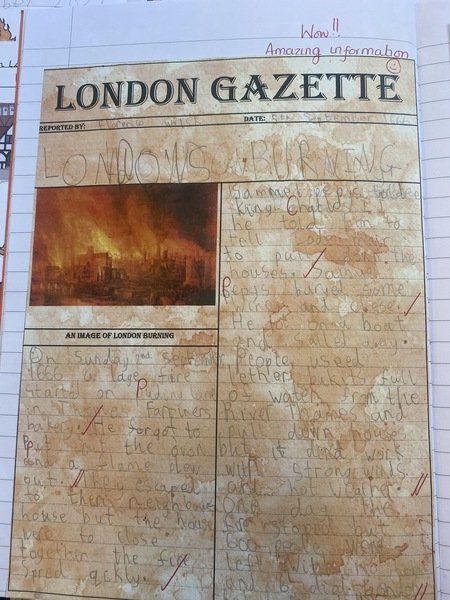 Wow!!
Amazing information
LONDON GAZETTE
REPORTED BY: Florence
DATE: 5th September 1666
LONDONS BURNING
AN IMAGE OF LONDON BURNING
On Sunday 2nd September
1666 a fire
Started on Pudding lane
in Farriners
bakery. He forgot to
Put out the oven
and a flame blew
out. They escaped
to their neighbour
house but the house
were to close
together the fire
Spred qckly.
King Charles
he told him to
tell
to pull the
houses.
Pepys baryed some
wine and cheese.
He found a boat
and away.
People used
lether full
of water from the
River Thames and
pull down house
but it didnt work
with strong winds
and hot
One day the
fire stopped but
left with no
and 6